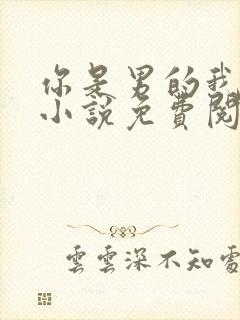 你是男的我
小說免費閱
雲雲深不知處